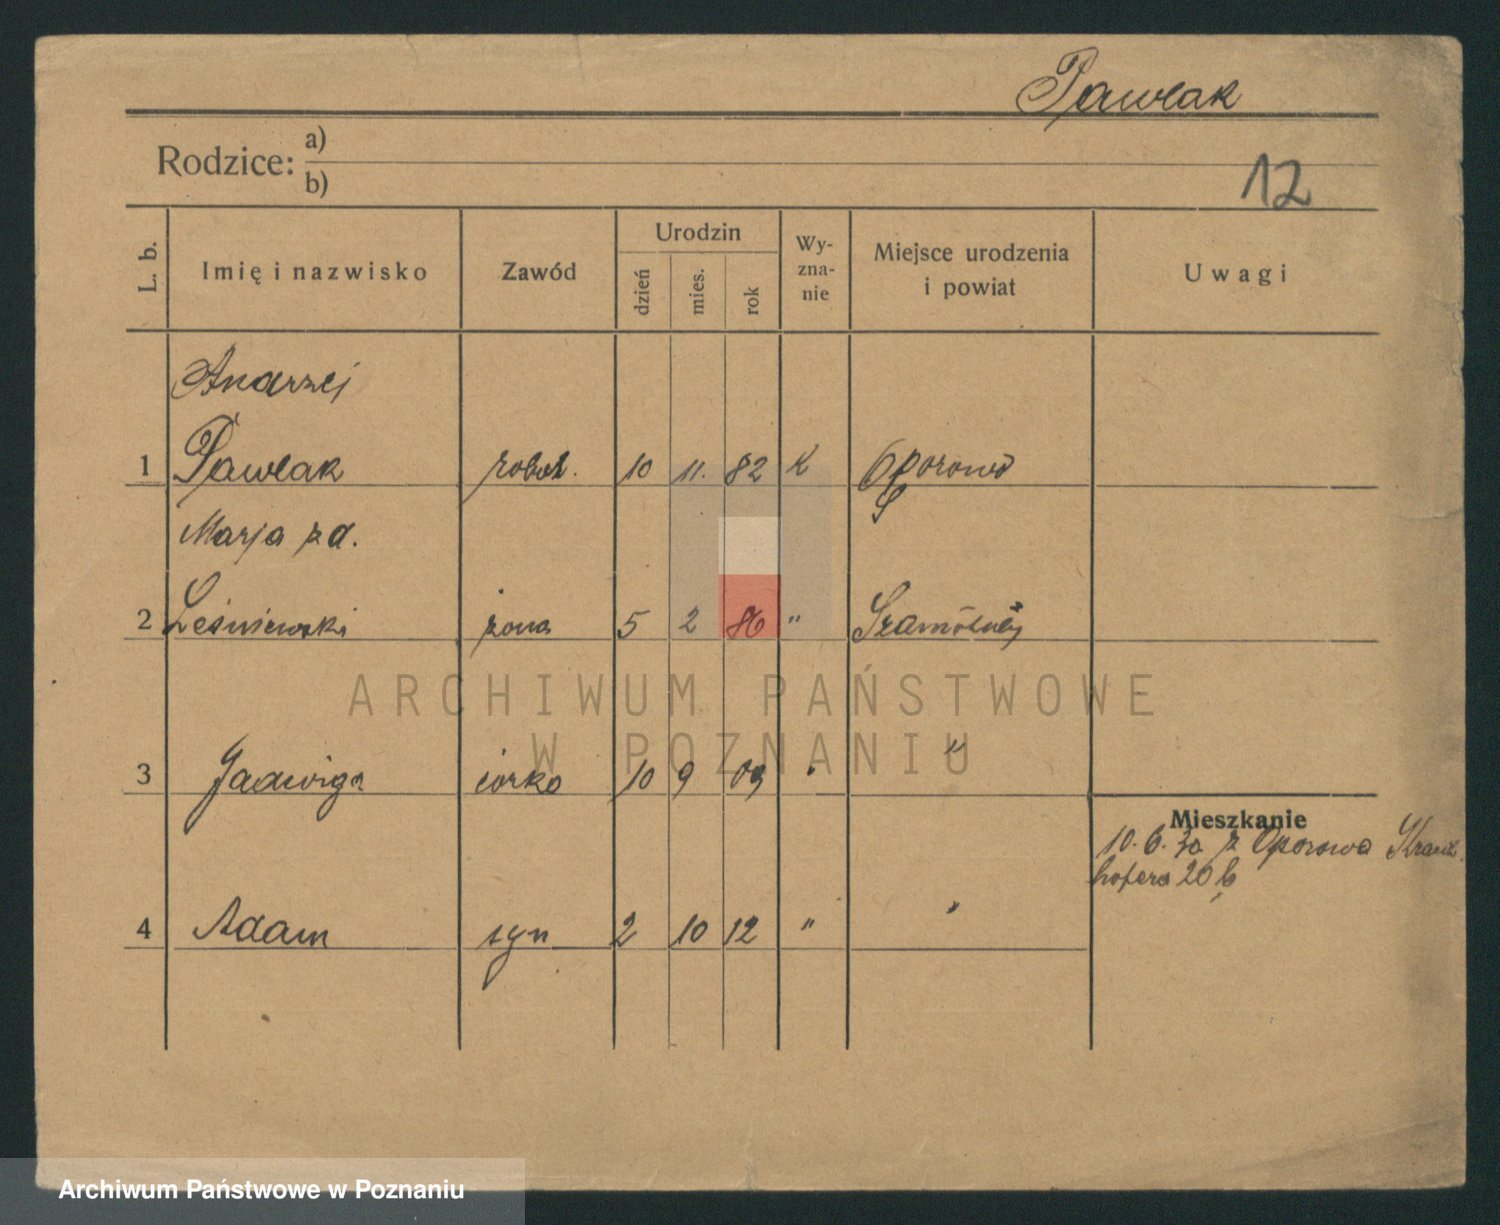 Pawlak
Rodzice: a)
b)
12
L. b.
Imię i nazwisko
Zawód
Urodzin
dzień
mies.
rok
Wy-
zna-
nie
Miejsce urodzenia
i powiat
Uwagi
Andrzej
1 Pawlak robot. 10 11. 82 k Oporowo
S
Marja z d.
2 Leśniewski żona 5 2 86 " Szamotuły
ARCHIWUM PAŃSTWOWE
W POZNANIU
3 Jadwiga córka 10 9 09 " "
Mieszkanie
10. 6. 30 z Oporowa
hofera 20 b
4 Adam syn 2 10 12 " "
Archiwum Państwowe w Poznaniu